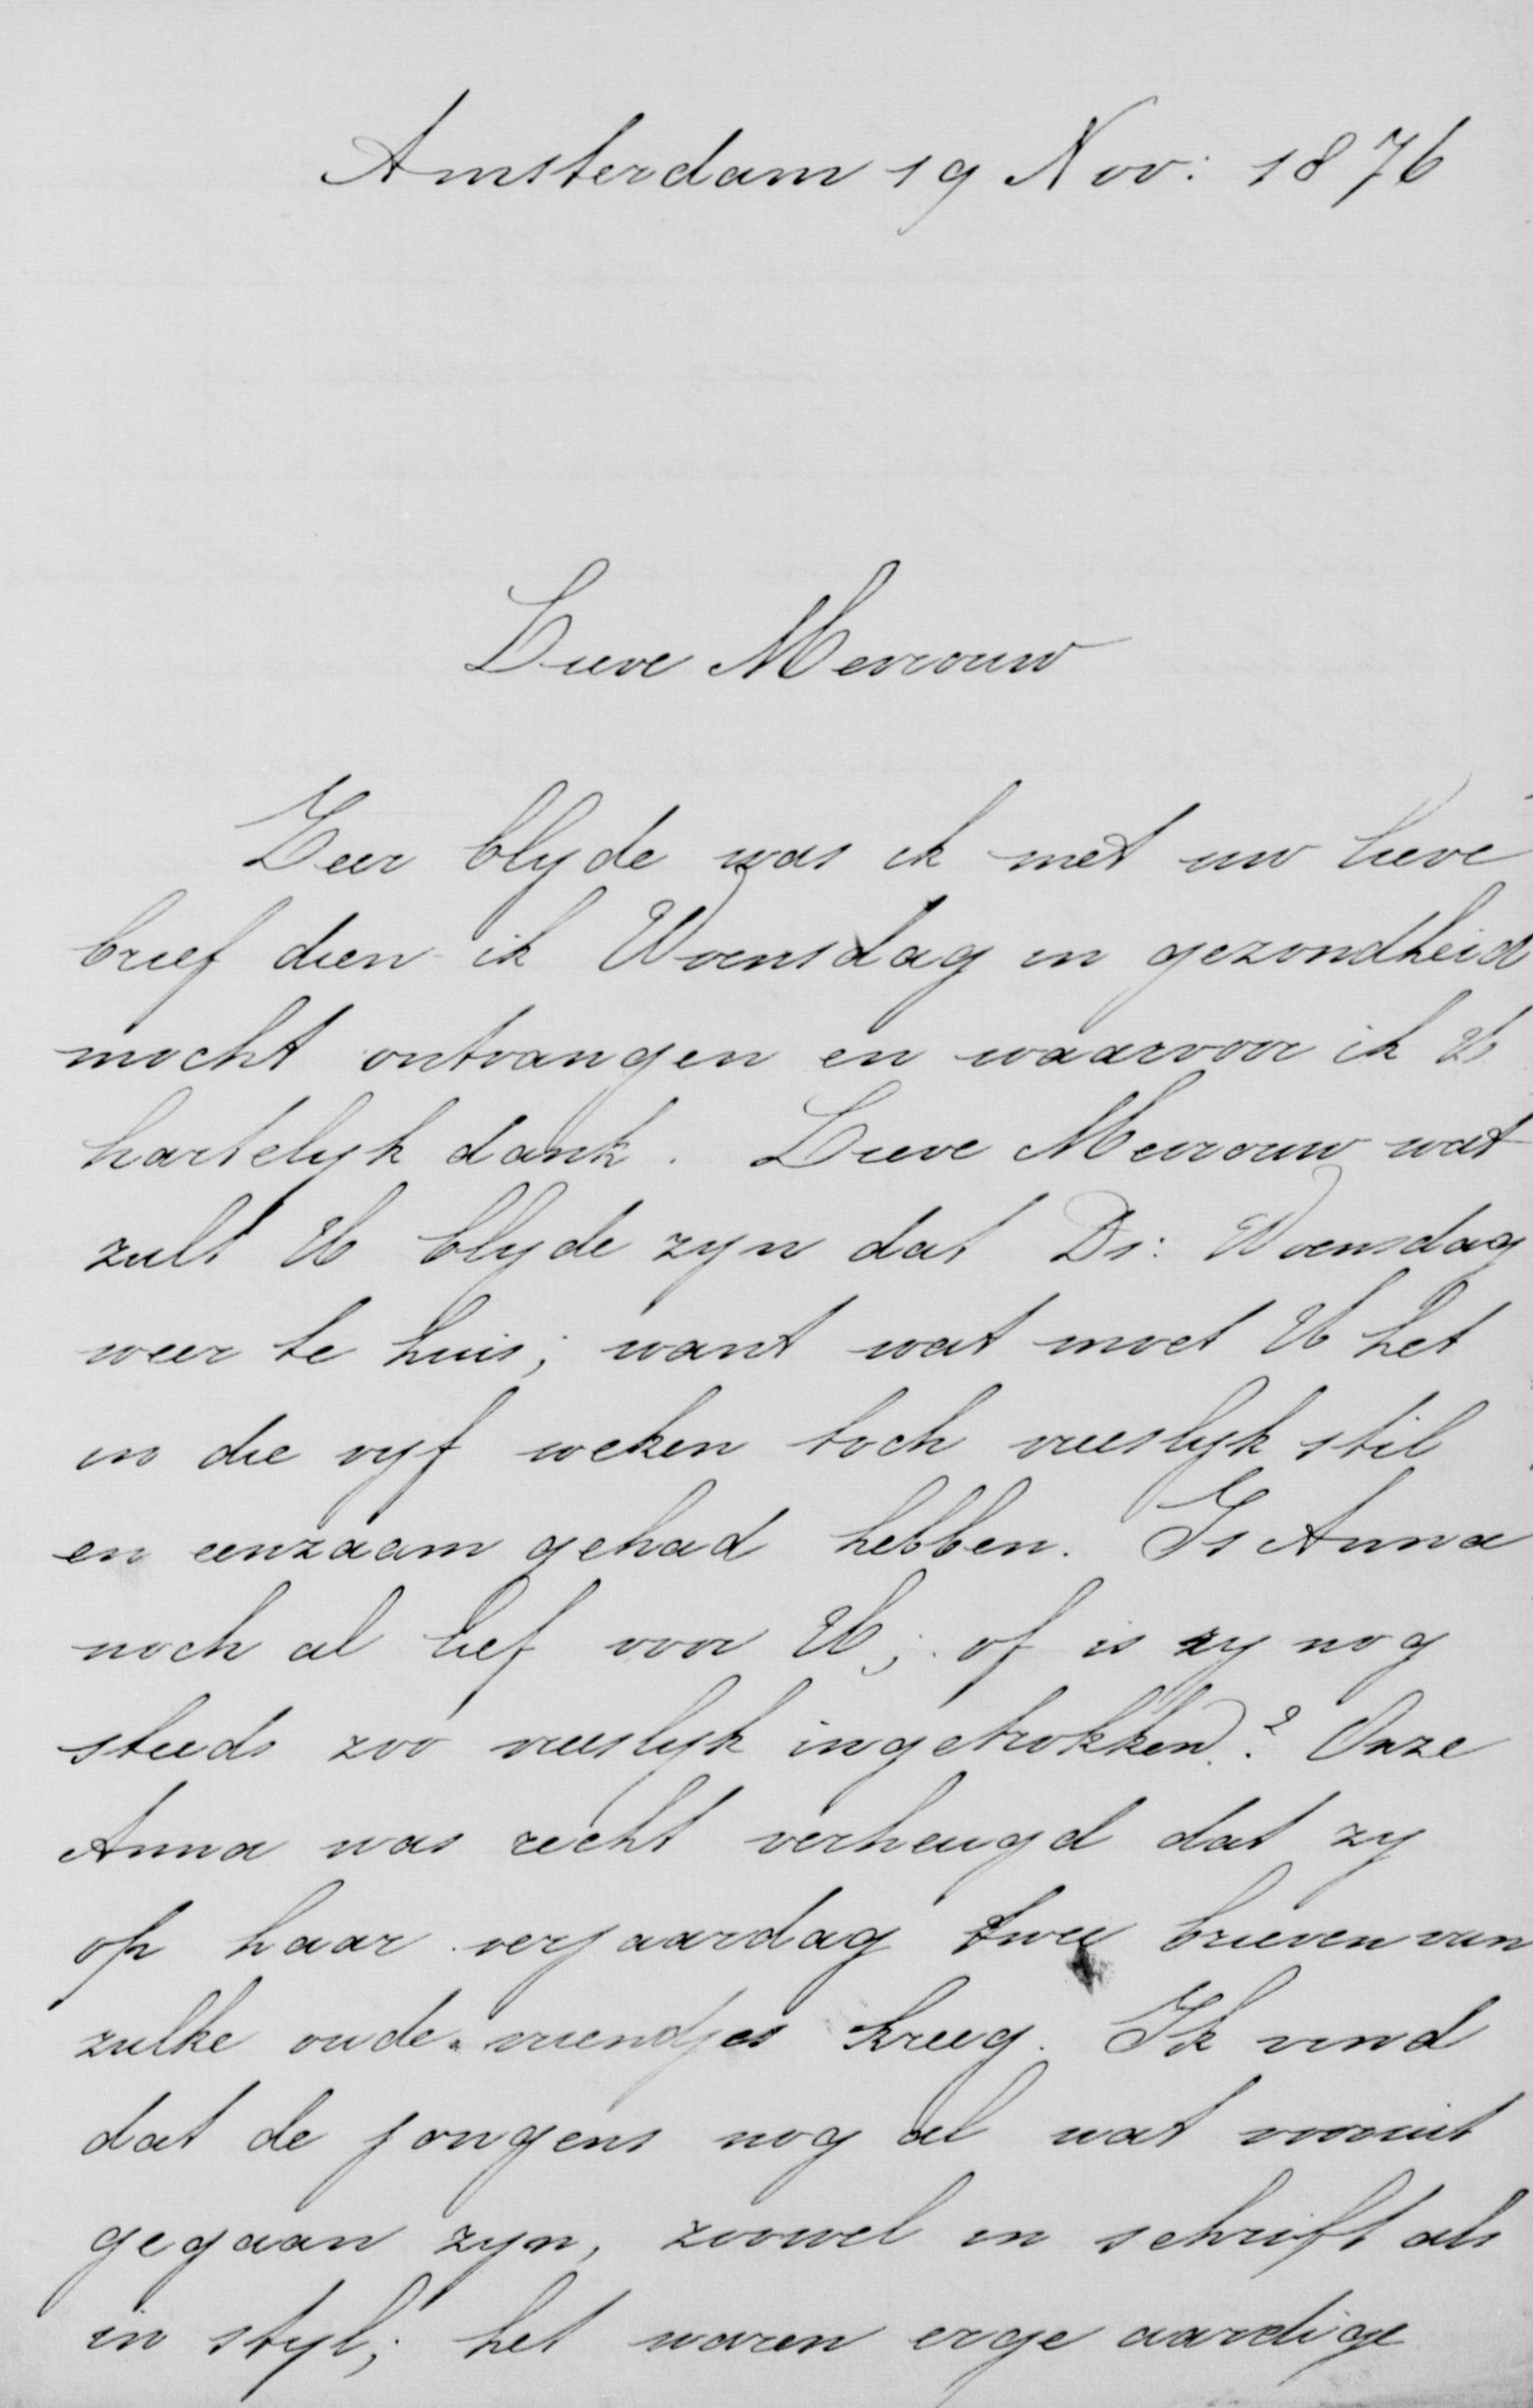 Amsterdam 19 Nov: 1876
Lieve Mevrouw
Zeer blyde was ik met uw lieve
brief dien ik Woensdag in gezondheid
mocht ontvangen en waarvoor ik U
hartelyk dank. Lieve Mevrouw wat
zult U blyde zyn dat Ds: Woensdag
weer te huis; want wat moet U het
in die vyf weken toch vreeslyk stil
en eenzaam gehad hebben. Is Anna
noch al lief voor U; of is zy nog
steeds zoo vreeslyk ingetrokken? Onze
Anna was recht verheugd dat zy
op haar verjaardag twee brieven van
zulke oude vriendjes kreeg. Ik vind
dat de jongens nog al wat vooruit
gegaan zyn, zoowel in schrift als
in styl; het waren erge aardige